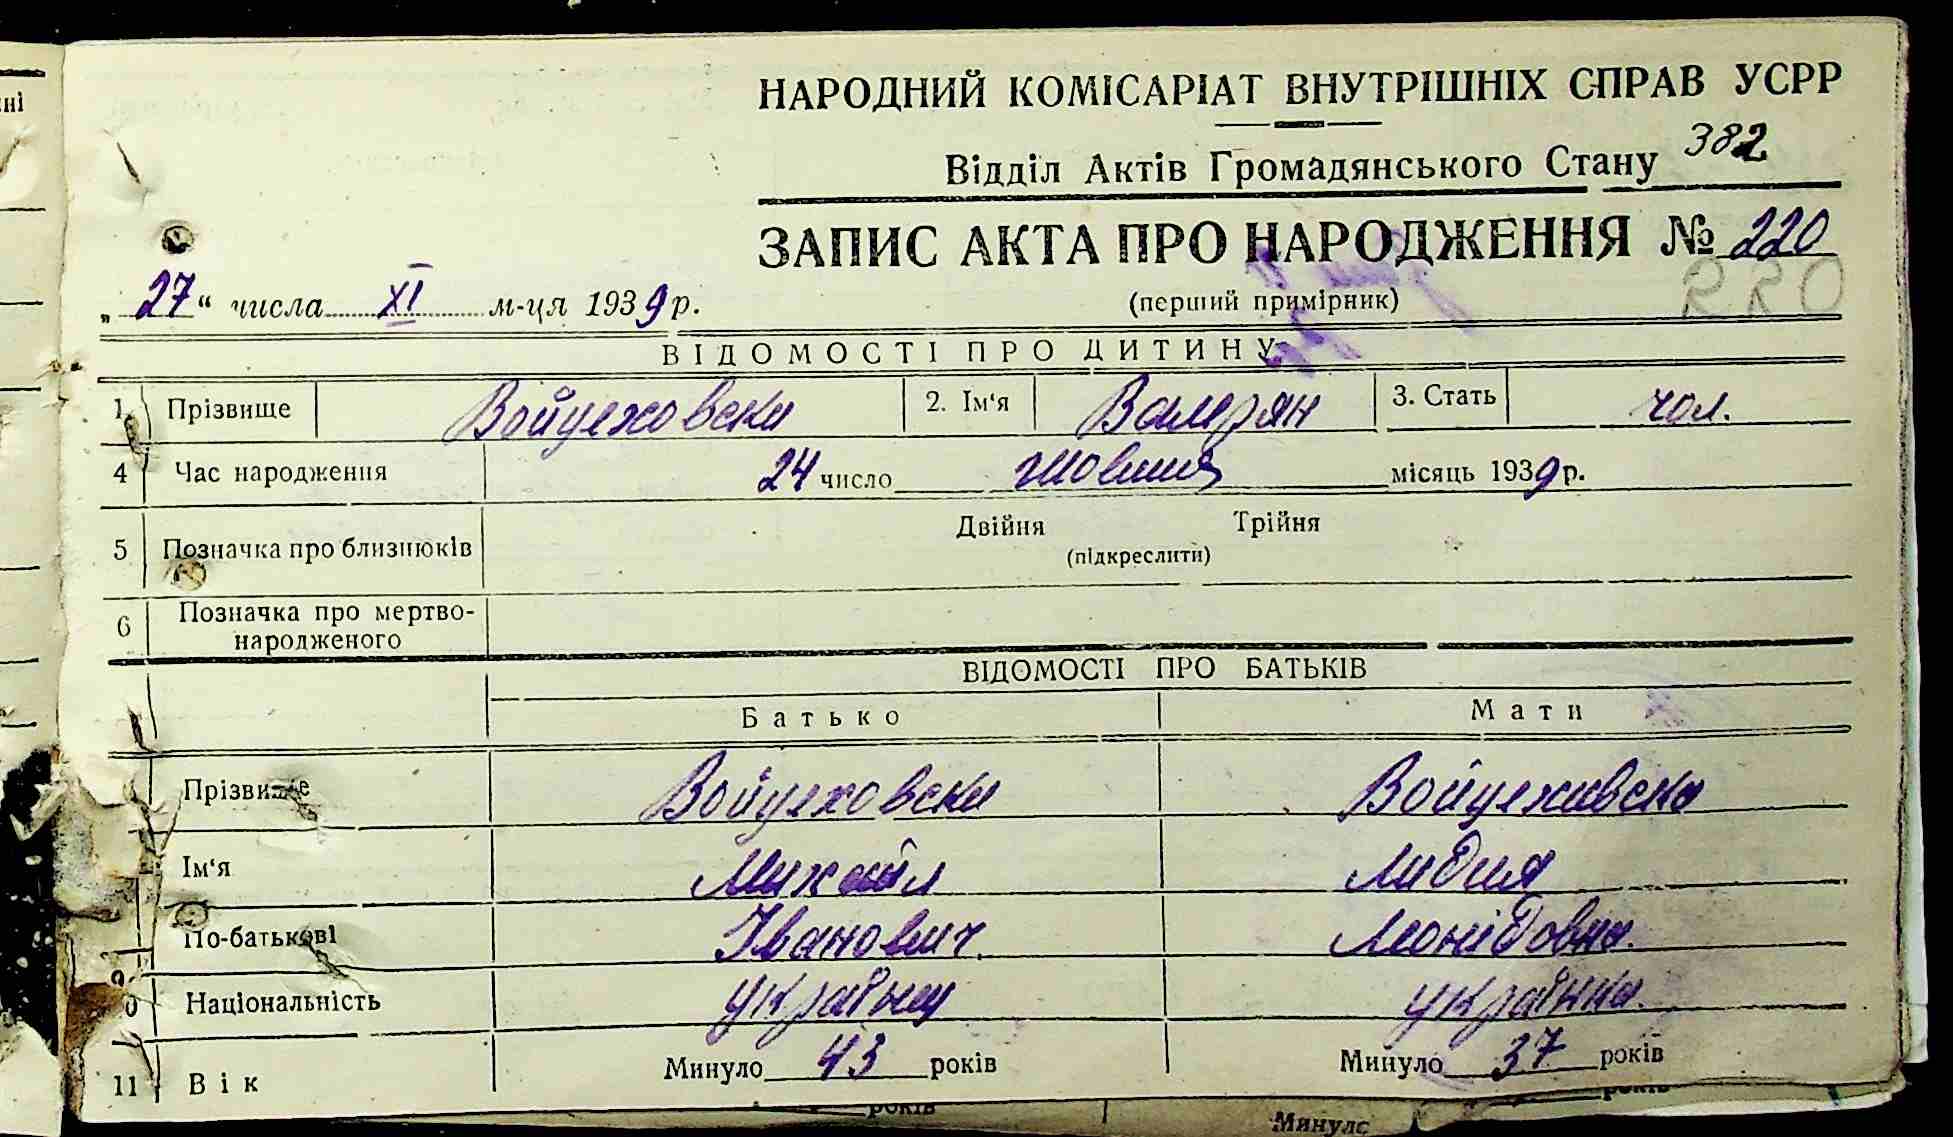 ні
НАРОДНИЙ КОМІСАРІАТ ВНУТРІШНІХ СПРАВ УСРР
Відділ Актів Громадянського Стану 382
ЗАПИС АКТА ПРО НАРОДЖЕННЯ № 220
„27“ числа XI м-ця 1939 р. (перший примірник) 220
ВІДОМОСТІ ПРО ДИТИНУ
1 Прізвище Войцеховски 2. Ім‘я Валерян 3. Стать чол.
4 Час народження 24 число жовтня місяць 1939 р.
Двійня Трійня
5 Позначка про близнюків (підкреслити)
6 Позначка про мертво-
народженого
ВІДОМОСТІ ПРО БАТЬКІВ
Батько Мати
Прізвище Войцеховски Войцеховска
Ім‘я Михайл Лидия
По-батькові Іванович Леонідовна.
9
Національність українец українка.
11 Вік Минуло 43 років Минуло 37 років
років Минуло років